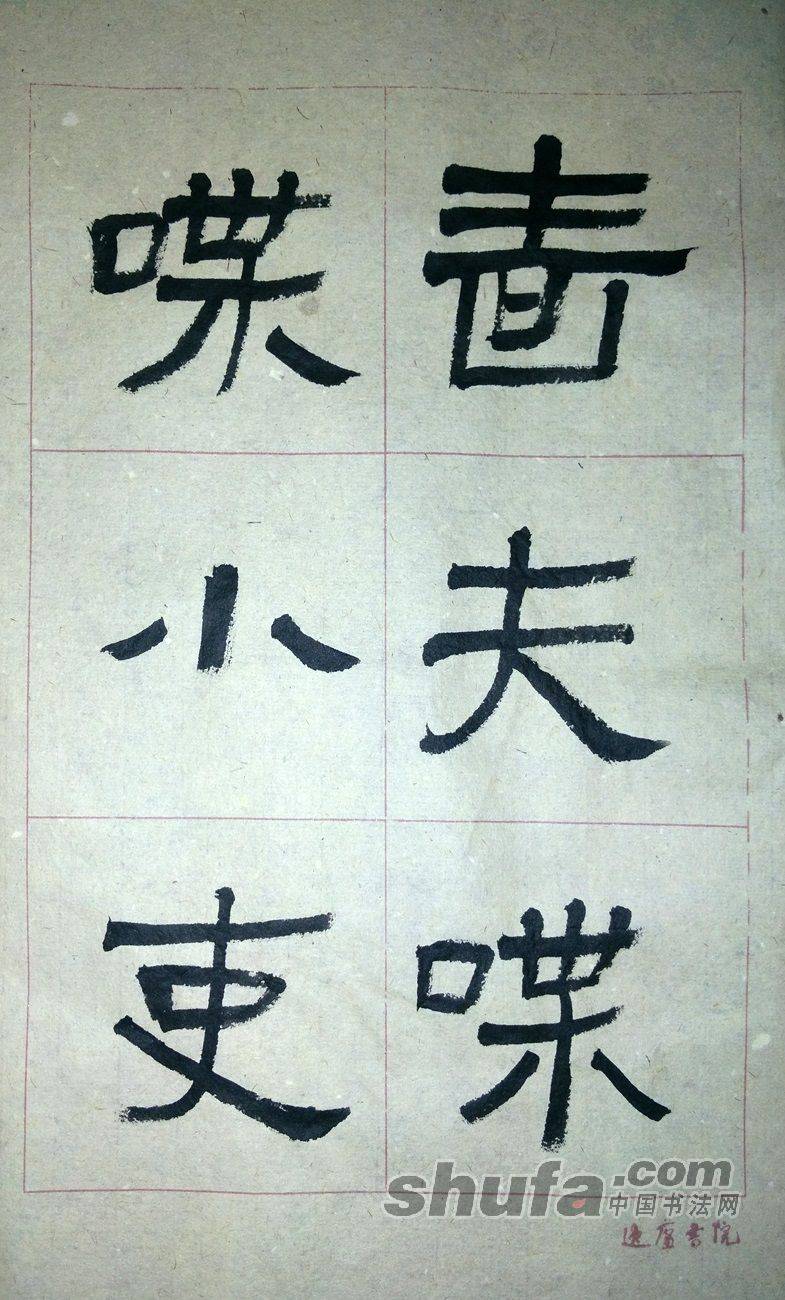 嗇夫喋
喋小吏
shufa.com
中国书法网